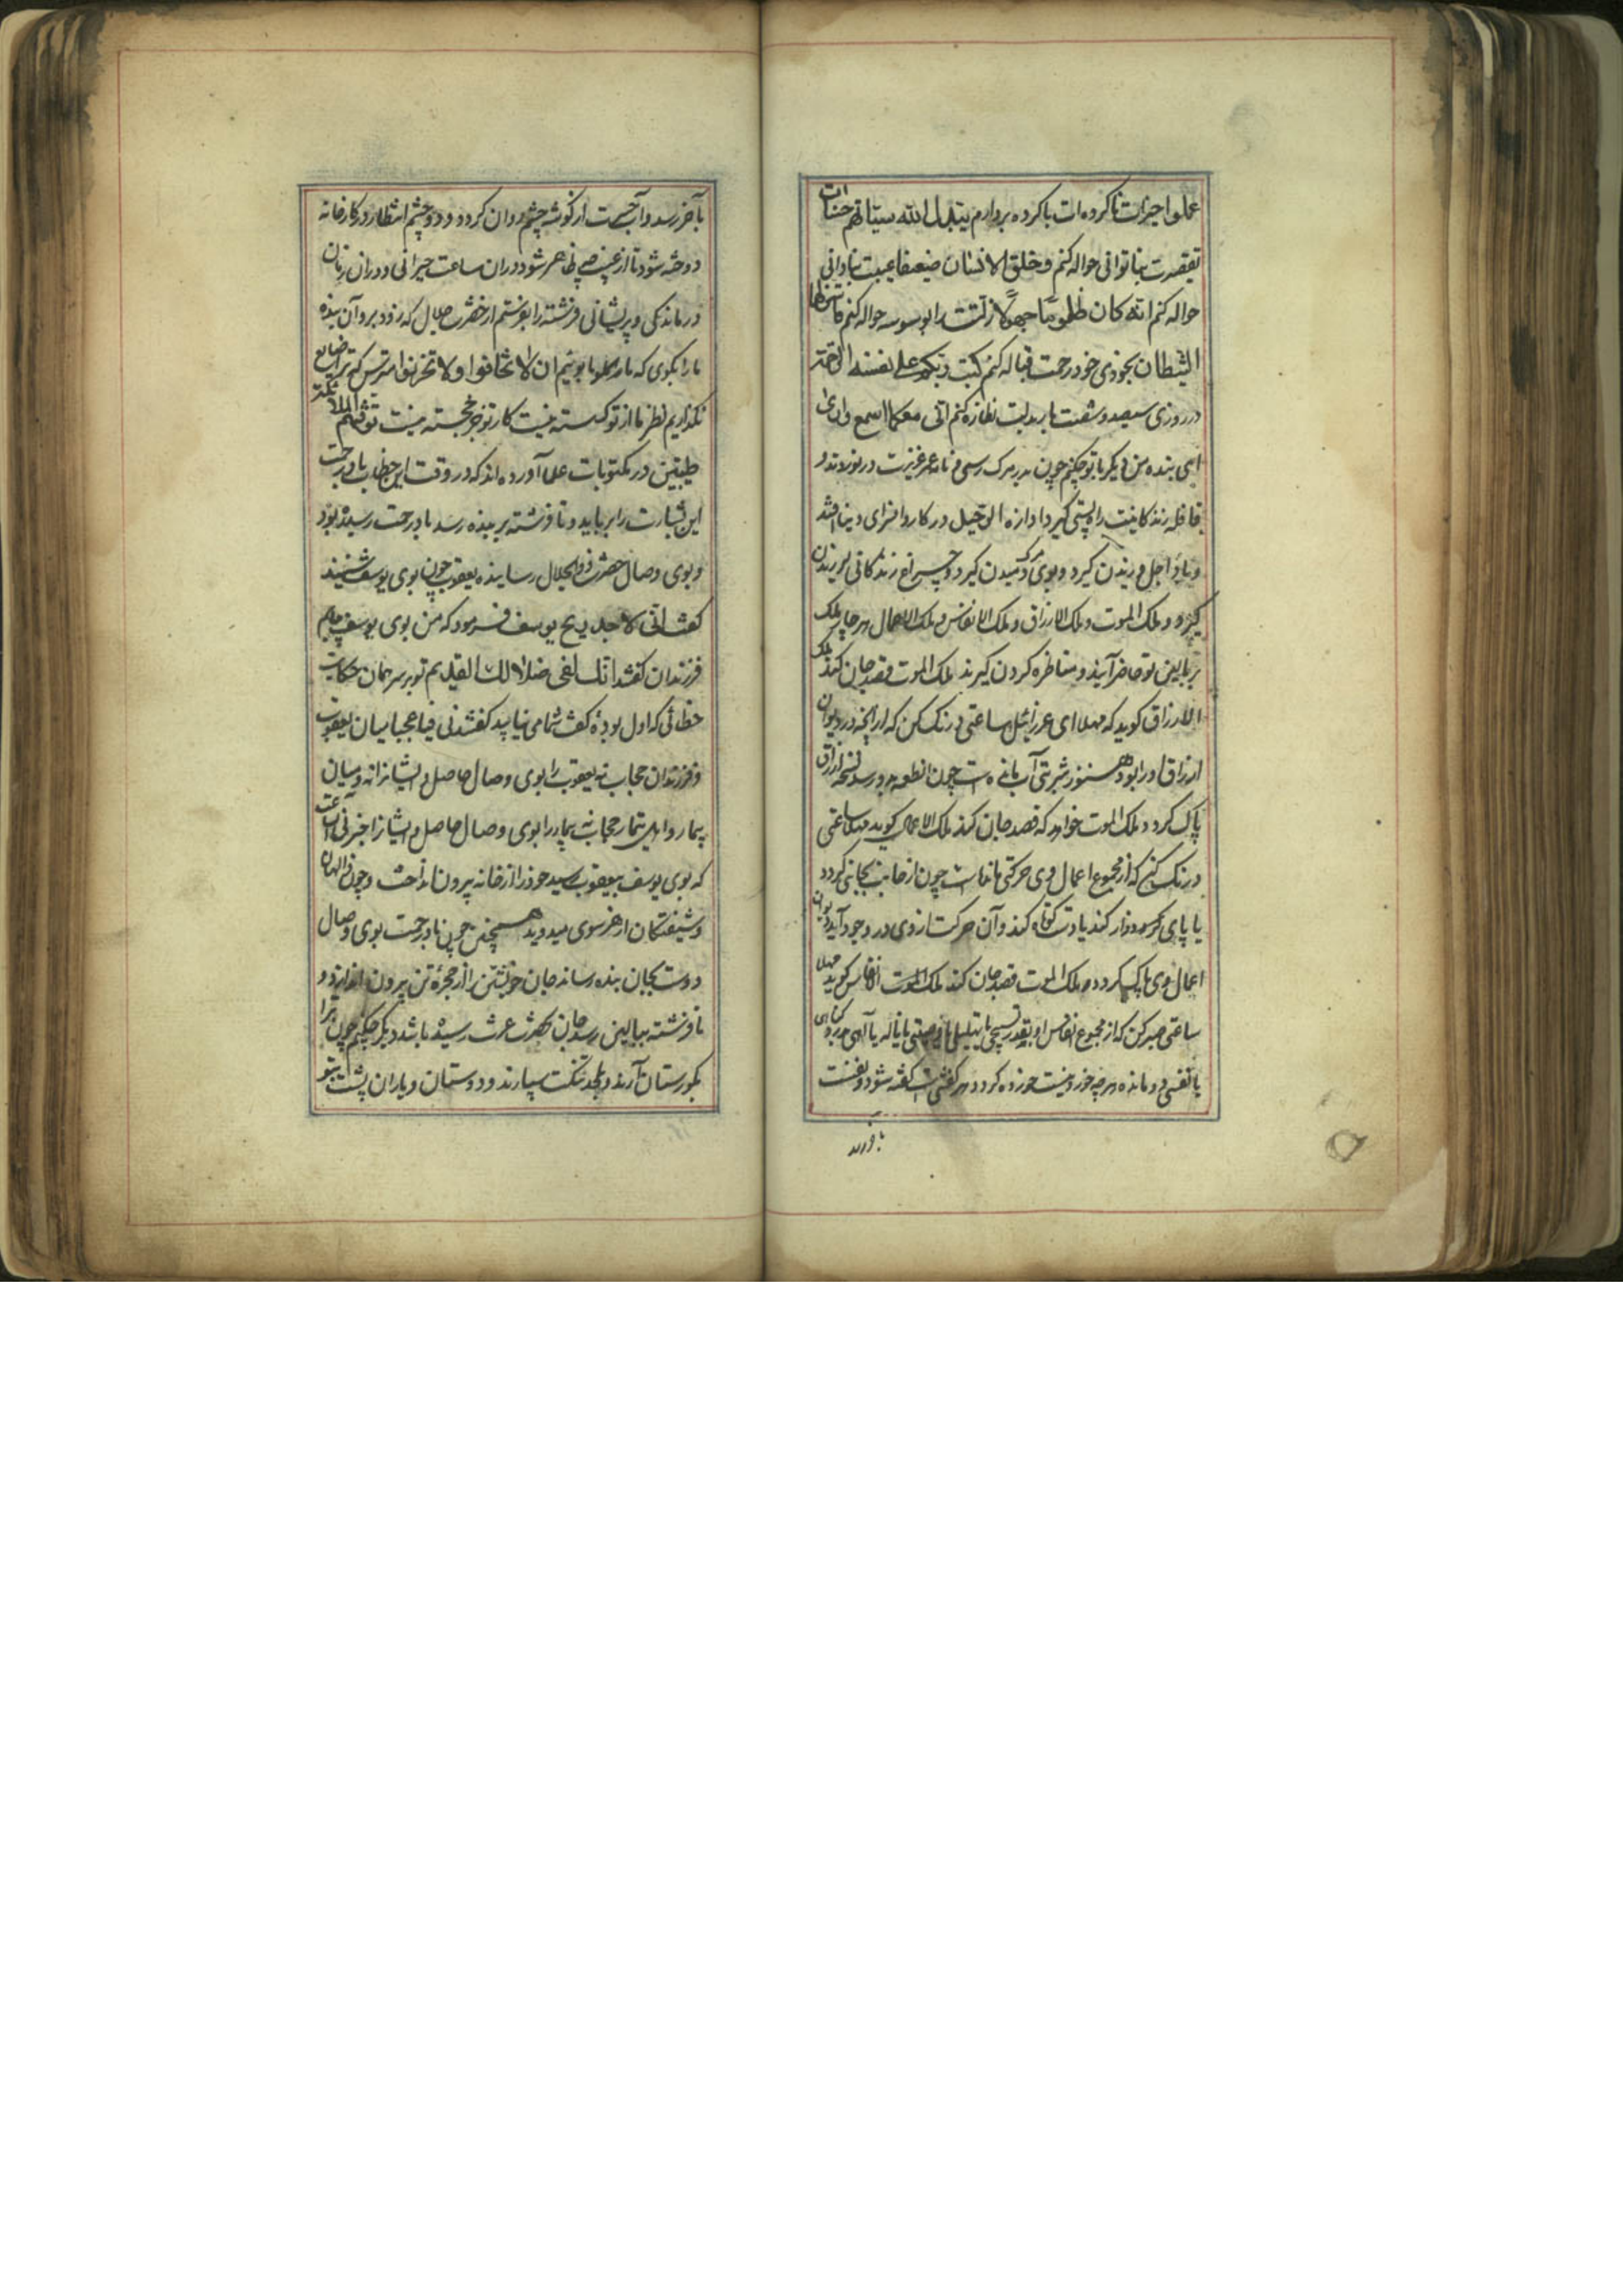 عملوا خیرات ناکرده‌ات باکرده بردارم یبدل الله سیئاتهم حسنات
تقصیرت بناتوانی حواله کنم و خلق الانسان ضعیفا عیبت بنادانی
حواله کنم انه کان ظلوما جهولا زلتت را بوسوسه حواله کنم فازلهما
الشیطان بخودی خود رحمت قباله کنم کتب ربکم علی نفسه الرحمة
در روزی سیصد و شصت بار بدلت نظاره کنم انی معکما اسمع واری
ای بنده من دیگر با تو چکنم چون بدر مرک رسی و نامه عمر عزیزت در نوردند و
قافله زندکانیت راه پستی کیرد اوازه الرحیل در کاروانسرای دینا افتد
و باد اجل وزیدن کیرد و بوی مرک دمیدن کیرد و چراغ زندکانی پریدن
کیرد و ملک الموت و ملک الارزاق و ملک الانفاس و ملک الاعمال هر چهار ملک
بر بالین تو حاضر آیند و مناظره کردن کیرند ملک الموت قصد جان کند ملک
الارزاق کوید که مهلا ای عزرائیل ساعتی درنک کن که از آنچه در دیوان
ارزاق او را بود هنوز شربتی آب مانده است چون آنطعمه برسد نسخه ارزاق
پاک کردد ملک الموت خواهد که قصد جان کند ملک الاعمال کوید مهلا ساعتی
درنک کن که از مجموع اعمال وی حرکتی مانده است چون از جانب بجانبی کردد
یا پای دراز کند یا دست کوتاه کند و آن حرکت از وی در وجود آید دیوان
اعمال وی پاک کردد و ملک الموت قصد جان کند ملک انفاس کوید مهلا
ساعتی صبر کن که از مجموع انفاس او بقدر تسبیحی یا تهلیلی یا وصیتی یا ناله یا آهی
یا نفسی و مانده هر چه خوردنیست خورده کردد هر کفتنی است کفته شود و نفست
بآخر رسد
بآخر رسد و آب حسرت از کوشه چشم روان کردد و دو چشم انتظار در کارخانه
دوخته شود تا از غیب چه ظاهر شود در آن ساعت حیرانی و در آن زمان
درماندکی و پریشانی فرشته را بفرستم از حضرت جلال که زود برو آن بنده
مارا بکوی که ان لا تخافوا ولا تحزنوا مترس که ترا ضایع
نکذاریم نظر ما از تو کسسته نیست کار تو جز خجسته نیست تتوفیهم الملائکة
طیبین در مکتوبات علما آورده‌اند که در وقت این خطاب باد رحمت
این بشارت را برباید و تا فرشته بر بنده رسد باد رحمت رسیده بود
و بوی وصال حضرت ذوالجلال رسانیده یعقوب چون بوی یوسف شنید
کفت انی لاجد ریح یوسف فرمود که من بوی یوسف
فرزندان کفتند انک لفی ضلالک القدیم تو بر سر همان حکایت
خطائی که اول بوده کفت شما می‌نیابید کفتند نی فیاعجبا میان یعقوب
و فرزندان حجاب نه یعقوب را بوی وصال حاصل و ایشانرا نه و میان
بیمار و اهل بیمار حجاب نه بیمار را بوی وصال حاصل و ایشانرا خبر نی
که بوی یوسف بیعقوب رسید خود را از خانه بیرون انداخت و چون والهان
و شیفتکان از هر سوی میدوید همچنین چون باد رحمت بوی وصال
دوست بجان بنده رساند جان خویشتن را از حجره تن بیرون اندازد و
تا فرشته ببالین رسد جان بحضرت عزت رسیده باشد دیکر چکنم چون ترا
بکورستان آرند و بلحد تنکت سپارند و دوستان و یاران پشت بتو